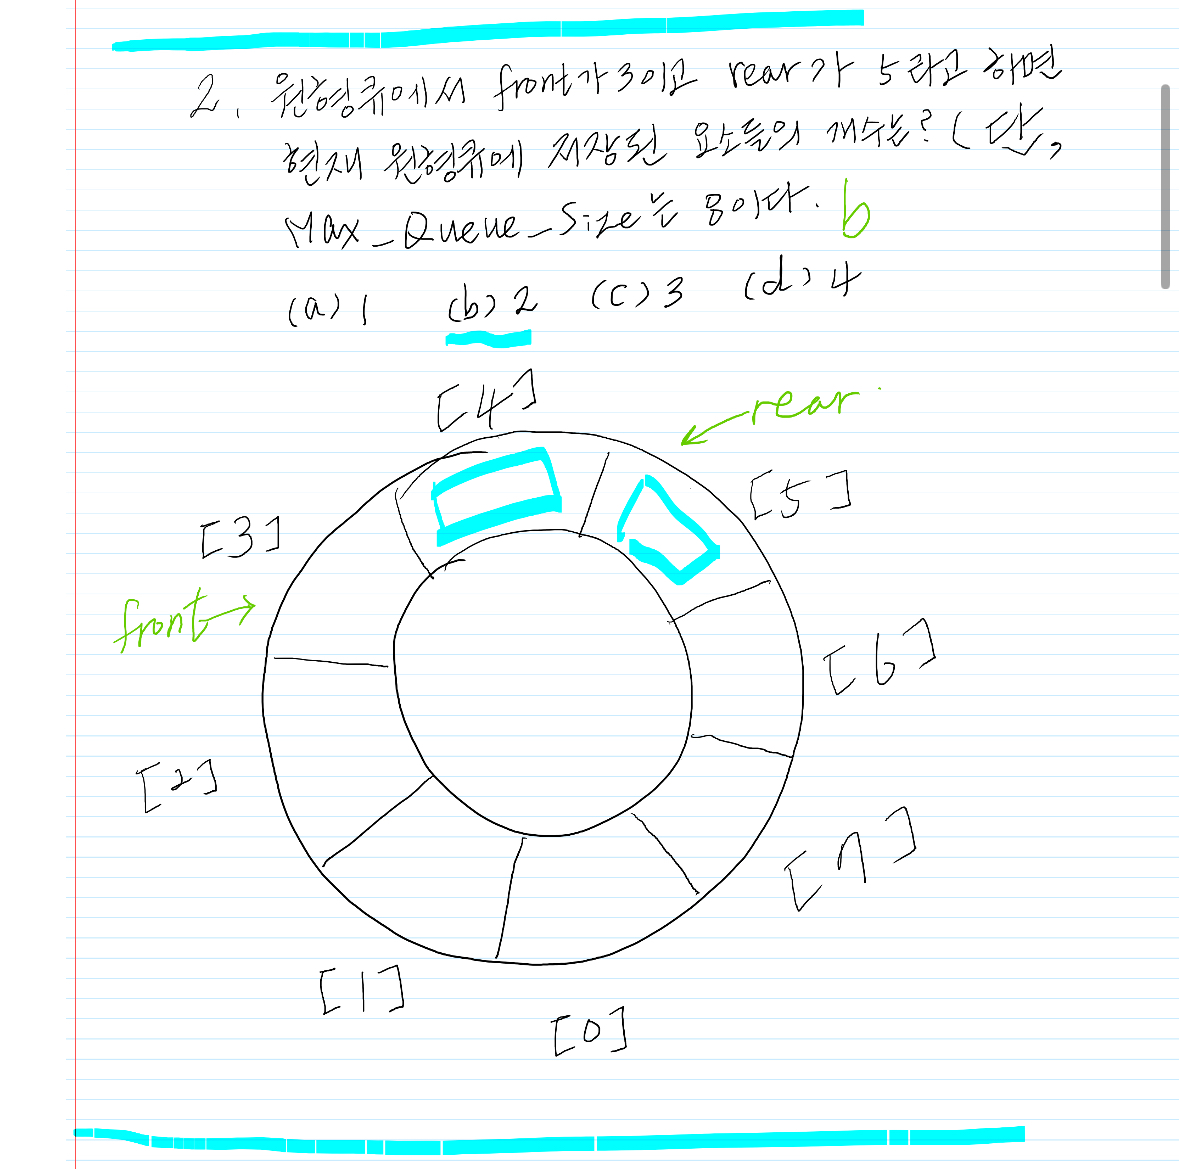 2. 원형큐에서 front가 3이고 rear가 5라고 하면
현재 원형큐에 저장된 요소들의 개수는? (단,
Max_Queue_Size는 8이다. b
(a) 1 (b) 2 (c) 3 (d) 4
[4]
rear
[5]
[3]
front
[6]
[2]
[7]
[1]
[0]